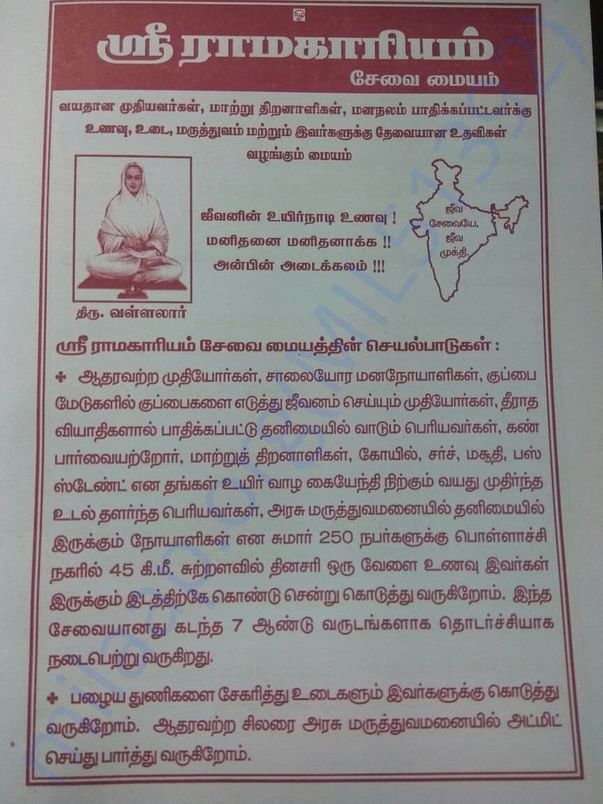 ஸ்ரீ ராமகாரியம்
சேவை மையம்
வயதான முதியவர்கள், மாற்று திறனாளிகள், மனநலம் பாதிக்கப்பட்டவர்க்கு
உணவு, உடை, மருத்துவம் மற்றும் இவர்களுக்கு தேவையான உதவிகள்
வழங்கும் மையம்
ஜீவனின் உயிர்நாடி உணவு !
மனிதனை மனிதனாக்க !!
அன்பின் அடைக்கலம் !!!
ஜீவ
சேவையே,
ஜீவ
முக்தி.
திரு. வள்ளலார்
ஸ்ரீ ராமகாரியம் சேவை மையத்தின் செயல்பாடுகள் :
✚ ஆதரவற்ற முதியோர்கள், சாலையோர மனநோயாளிகள், குப்பை
மேடுகளில் குப்பைகளை எடுத்து ஜீவனம் செய்யும் முதியோர்கள், தீராத
வியாதிகளால் பாதிக்கப்பட்டு தனிமையில் வாடும் பெரியவர்கள், கண்
பார்வையற்றோர், மாற்றுத் திறனாளிகள், கோயில், சர்ச், மசூதி, பஸ்
ஸ்டேண்ட் என தங்கள் உயிர் வாழ கையேந்தி நிற்கும் வயது முதிர்ந்த
உடல் தளர்ந்த பெரியவர்கள், அரசு மருத்துவமனையில் தனிமையில்
இருக்கும் நோயாளிகள் என சுமார் 250 நபர்களுக்கு பொள்ளாச்சி
நகரில் 45 கி.மீ. சுற்றளவில் தினசரி ஒரு வேளை உணவு இவர்கள்
இருக்கும் இடத்திற்கே கொண்டு சென்று கொடுத்து வருகிறோம். இந்த
சேவையானது கடந்த 7 ஆண்டு வருடங்களாக தொடர்ச்சியாக
நடைபெற்று வருகிறது.
✚ பழைய துணிகளை சேகரித்து உடைகளும் இவர்களுக்கு கொடுத்து
வருகிறோம். ஆதரவற்ற சிலரை அரசு மருத்துவமனையில் அட்மிட்
செய்து பார்த்து வருகிறோம்.